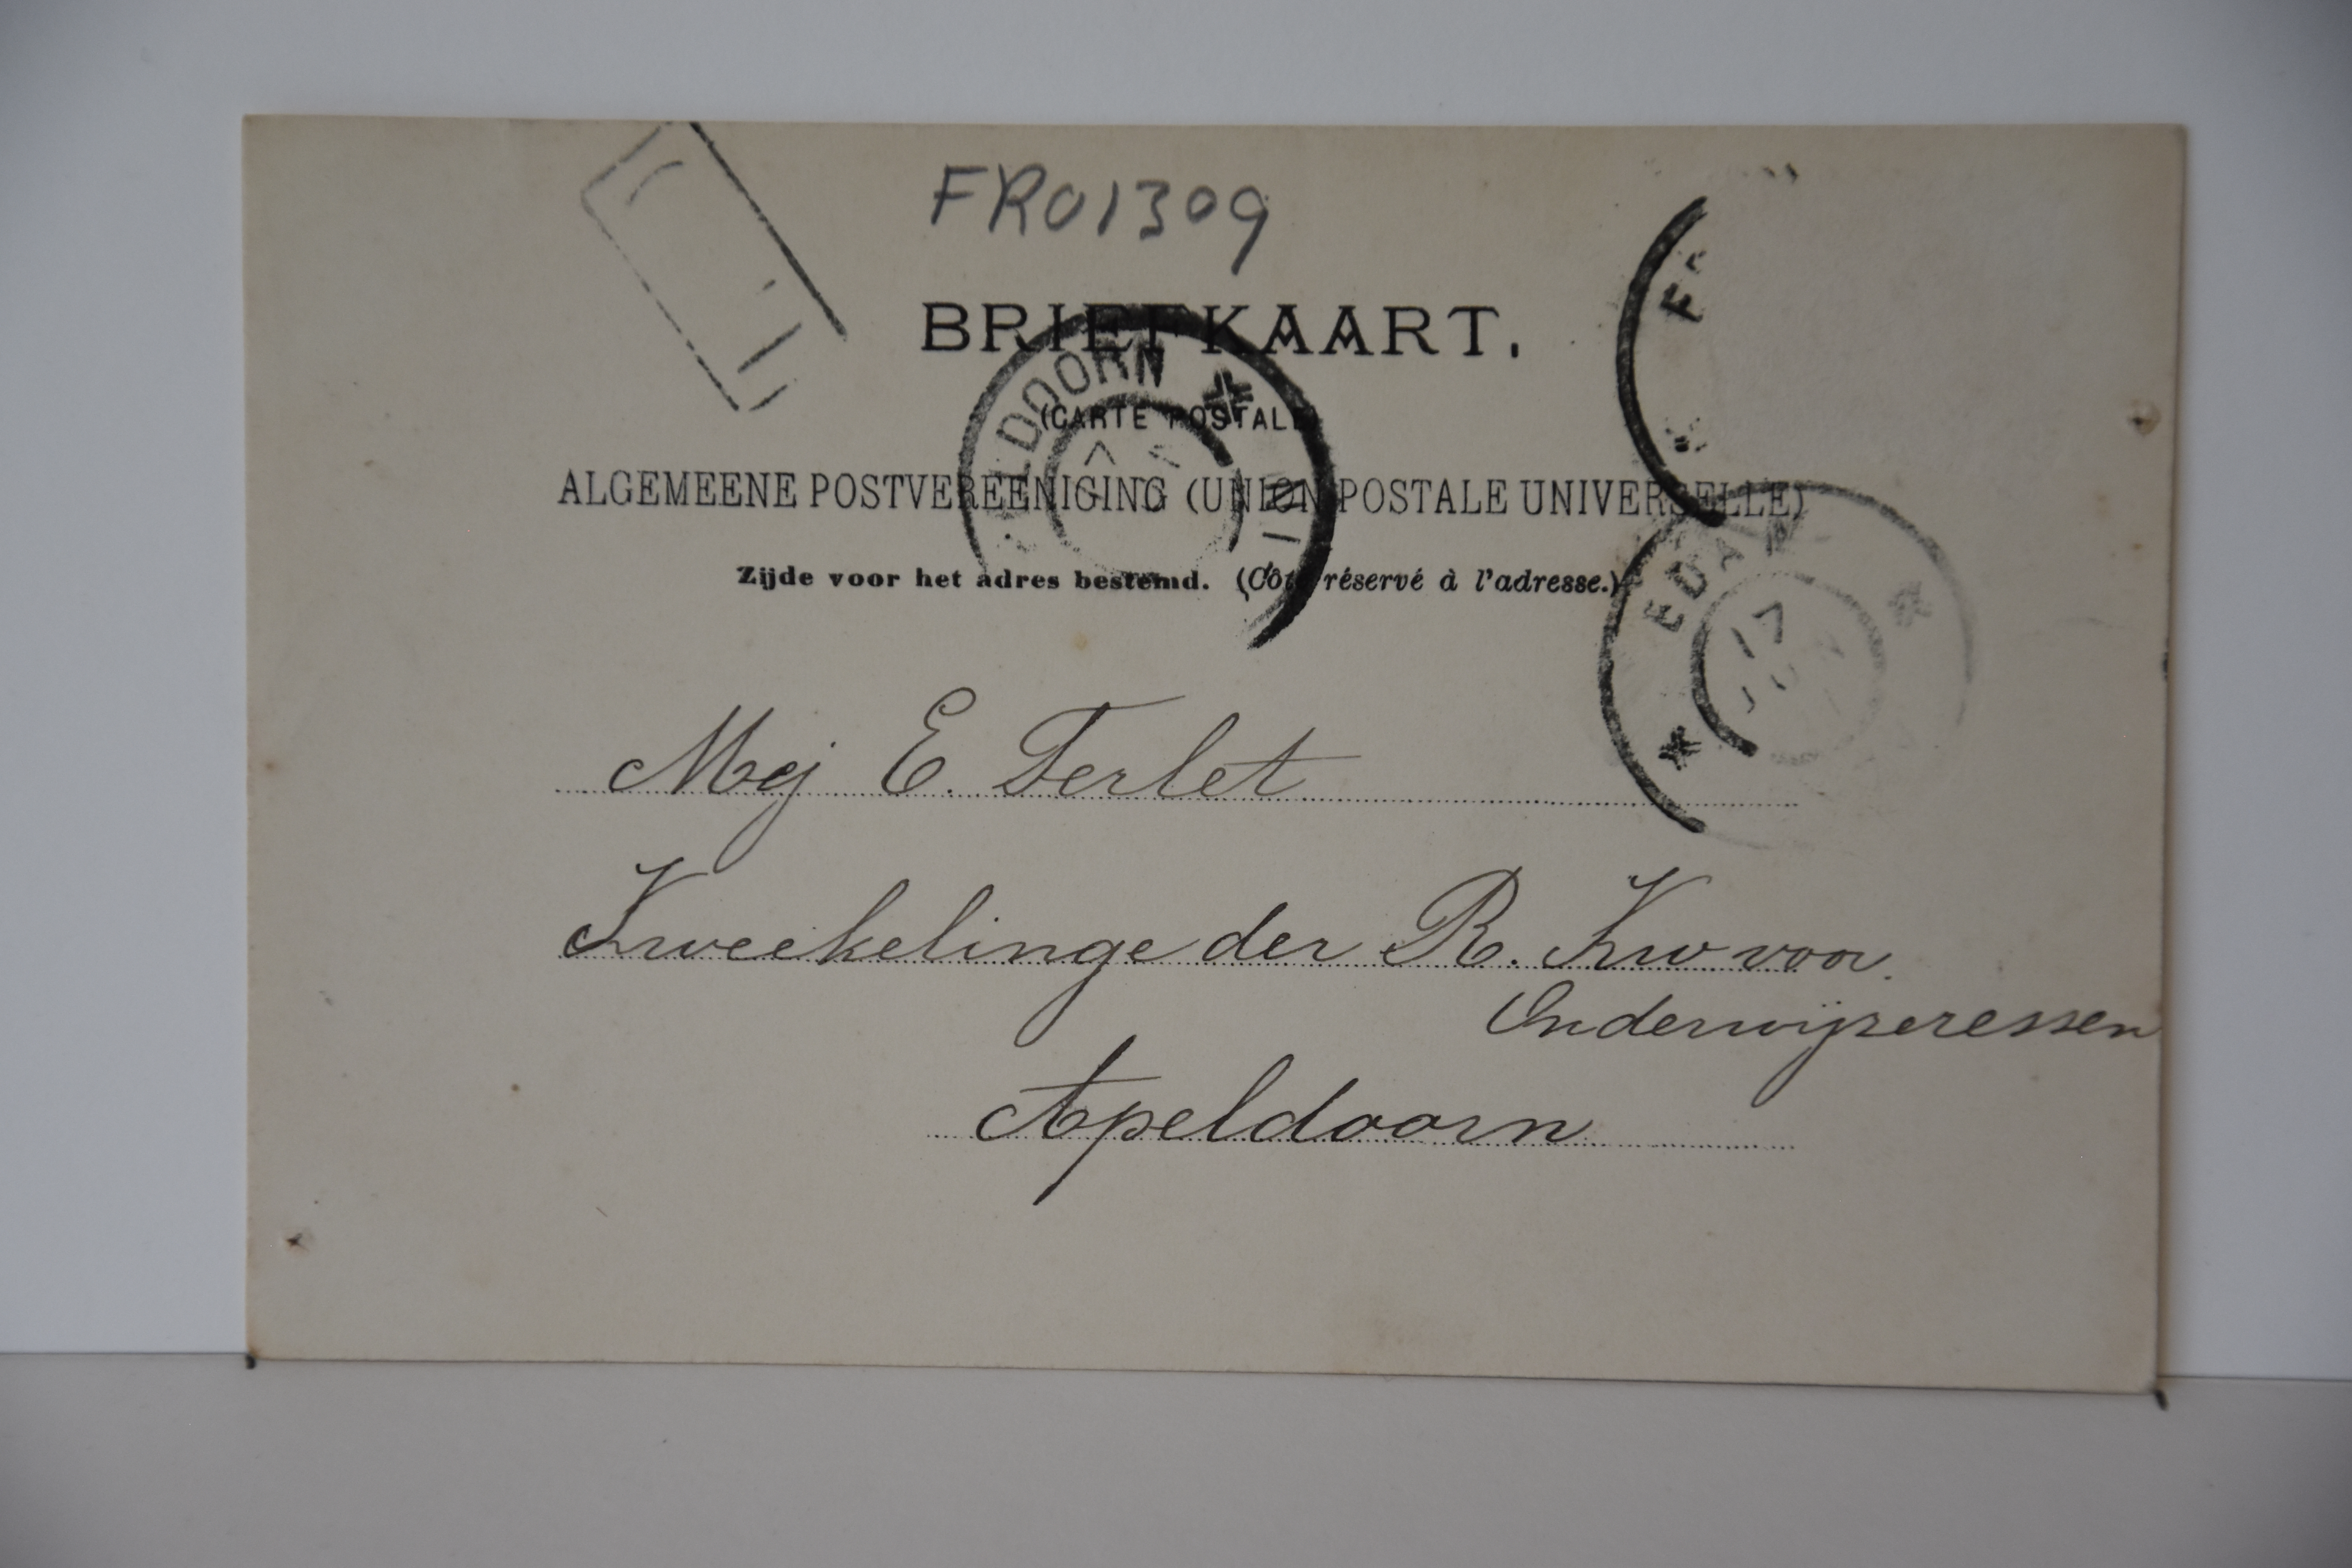 FR01309
BRIEFKAART.
(CARTE POSTALE
ALGEMEENE POSTVEREENIGING (UNION POSTALE UNIVERSELLE)
Zijde voor het adres bestemd. (Côté réservé à l'adresse.)
ELDOORN
EDAM
17
Mej E. Terlet
Kweekelinge der R. Kw voor
Onderwijzeressen
Apeldoorn